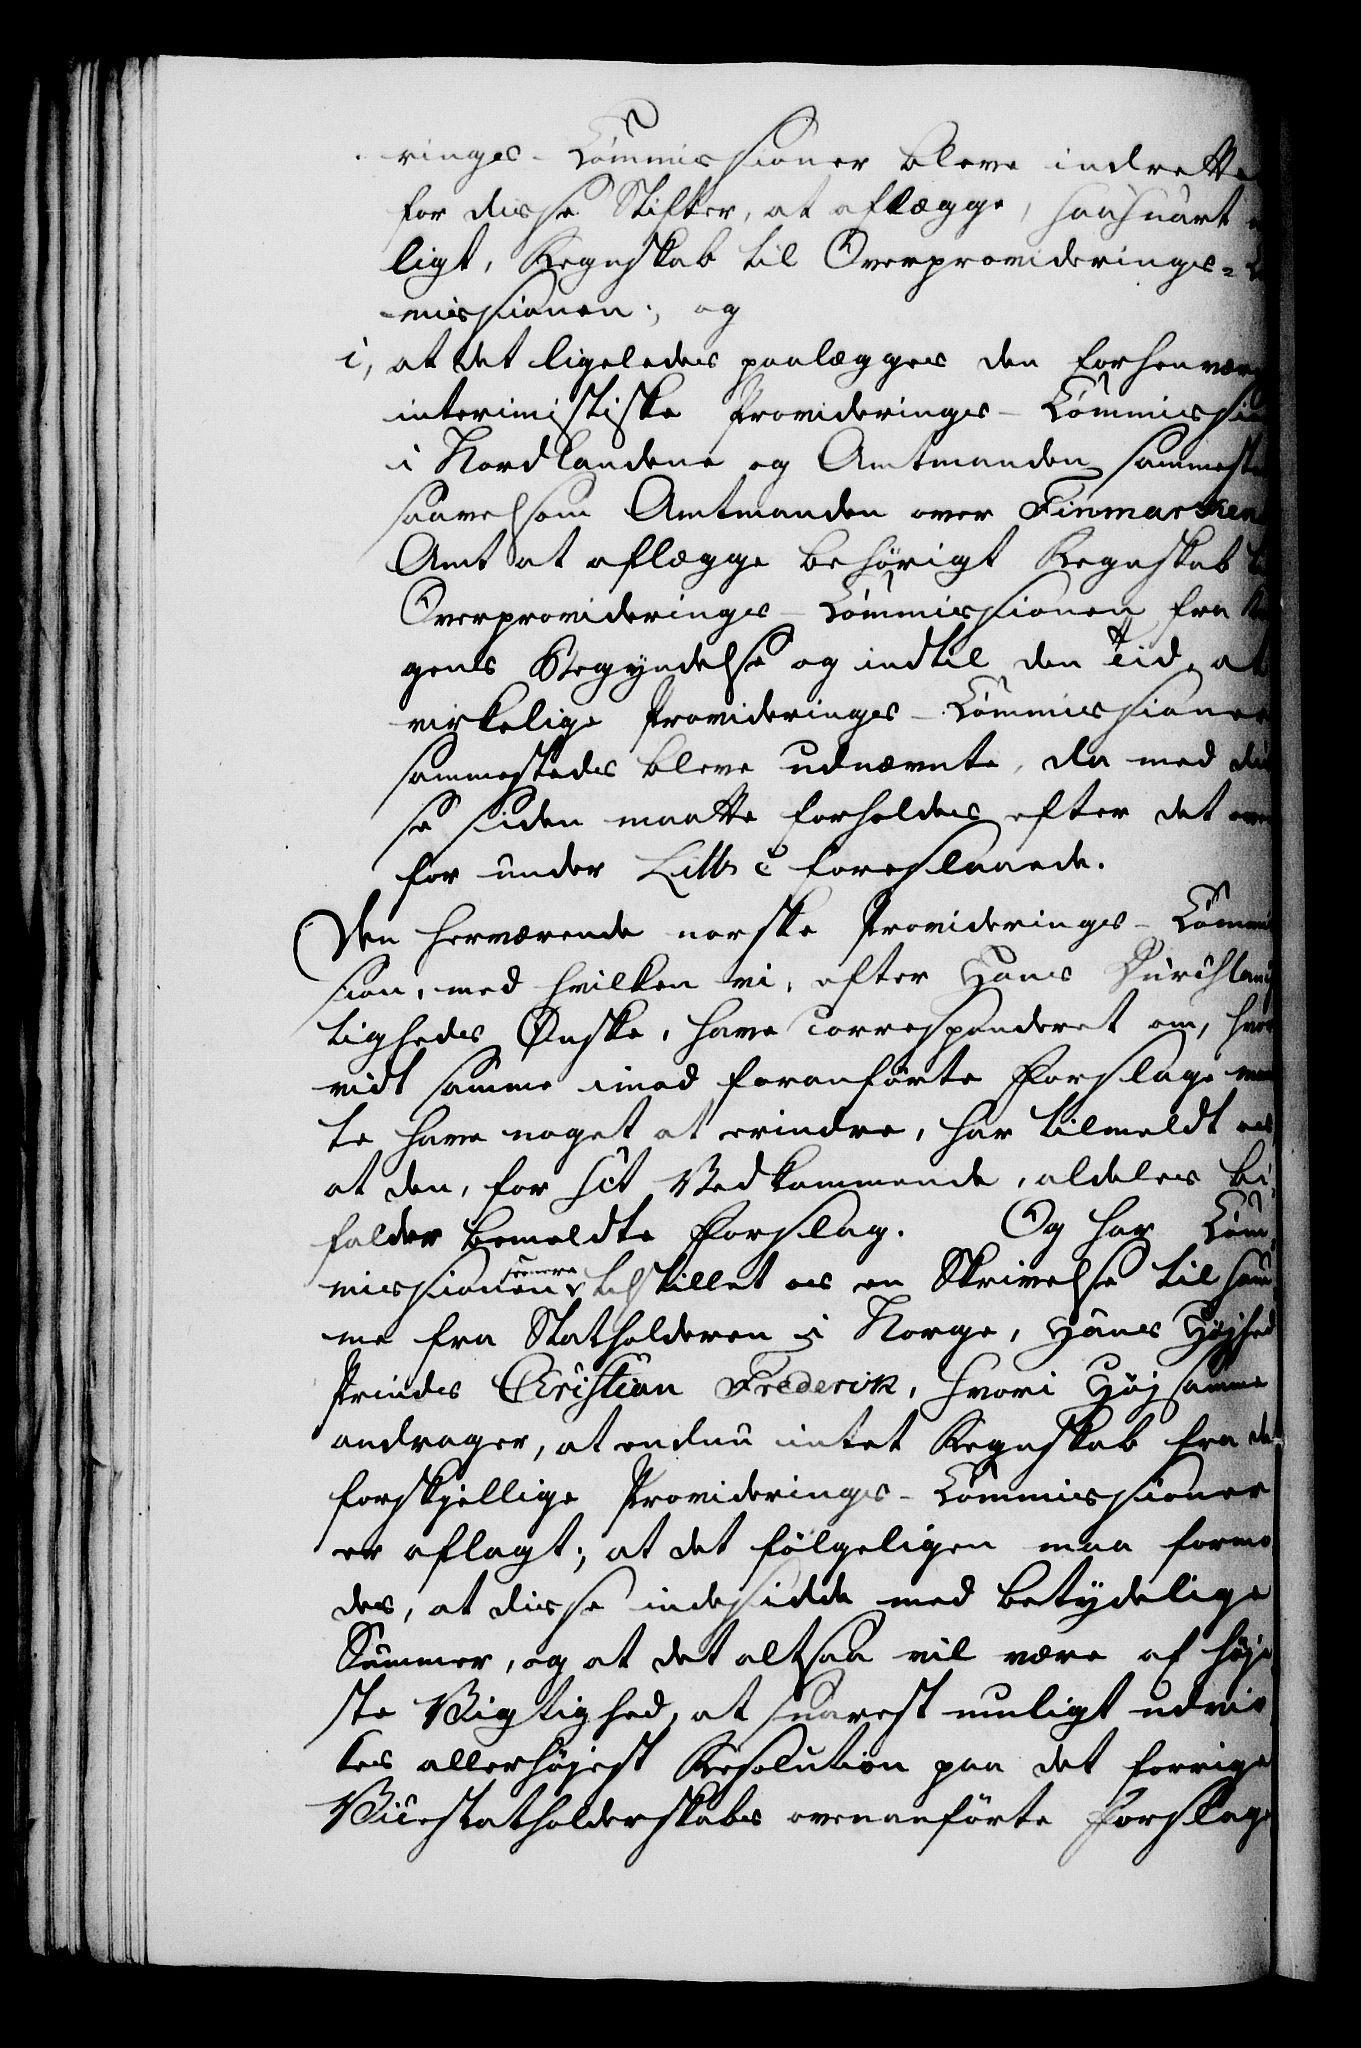 ringes-Commissioner bleve indrette
for disse Stifter, at aflægge, saasnart
ligt, Regnskab til Overprovideringes-
missionen; og
i, at det ligeledes paalægges den forhenvær
interimistiske Provideringes-Commissi
i Nordlandene og Amtmanden sammeste
saavelsom Amtmanden over Finmarkens
Amt at aflægge behörigt Regnskab
Overprovideringes-Commissionen fra
gens Begyndelse og indtil den Tid, at
virkelige Provideringes-Commissioner
sammestedes bleve udnævnte, da med dis
se siden maatte forholdes efter det oven
for under Littr c foreslaaede.
Den herværende norske Provideringes-Commis
sion, med hvilken vi, efter Hans Durchlau
tigheds Ønske, have correspenderet om, hvor
vidt samme imod foranförte Forslage maa
te have noget at erindre, har tilmeldt os,
at den, for sit Vedkommende, aldeles bi
falder bemeldte Forslag. Og har Com
missionen senere tilstillet os en Skrivelse til sam
me fra Statholderen i Norge, Hans Højhed
Prinds Christian Frederik, hvori Højsamme
andrager, at endnu intet Regnskab fra de
forskjellige Provideringes-Commissioner
er aflagt; at det fölgeligen maa formo
des, at disse indesidde med betydelige
Summer, og at det altsaa vil være af höje
ste Vigtighed, at snarest muligt udvir
kes allerhöjest Resolution paa det forrige
Vicestatholderskabs ovenanförte Forslage